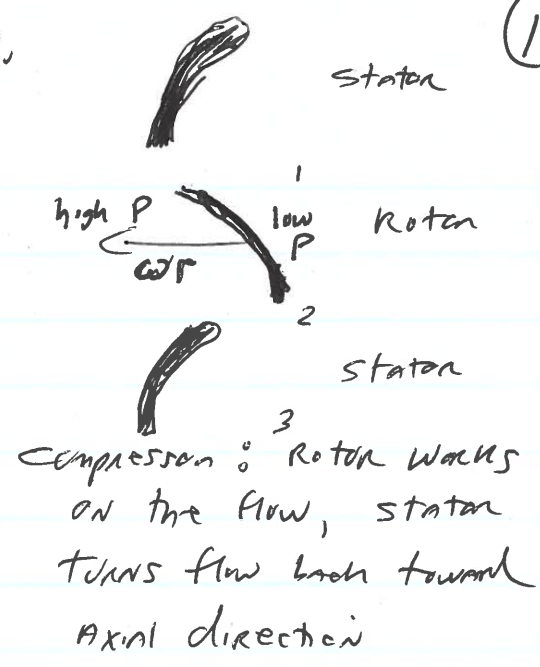 1
Stator
1
high P
low
P
Rotor
ωr
2
Stator
3
Compressor : Rotor works
on the flow, stator
turns flow back toward
Axial direction